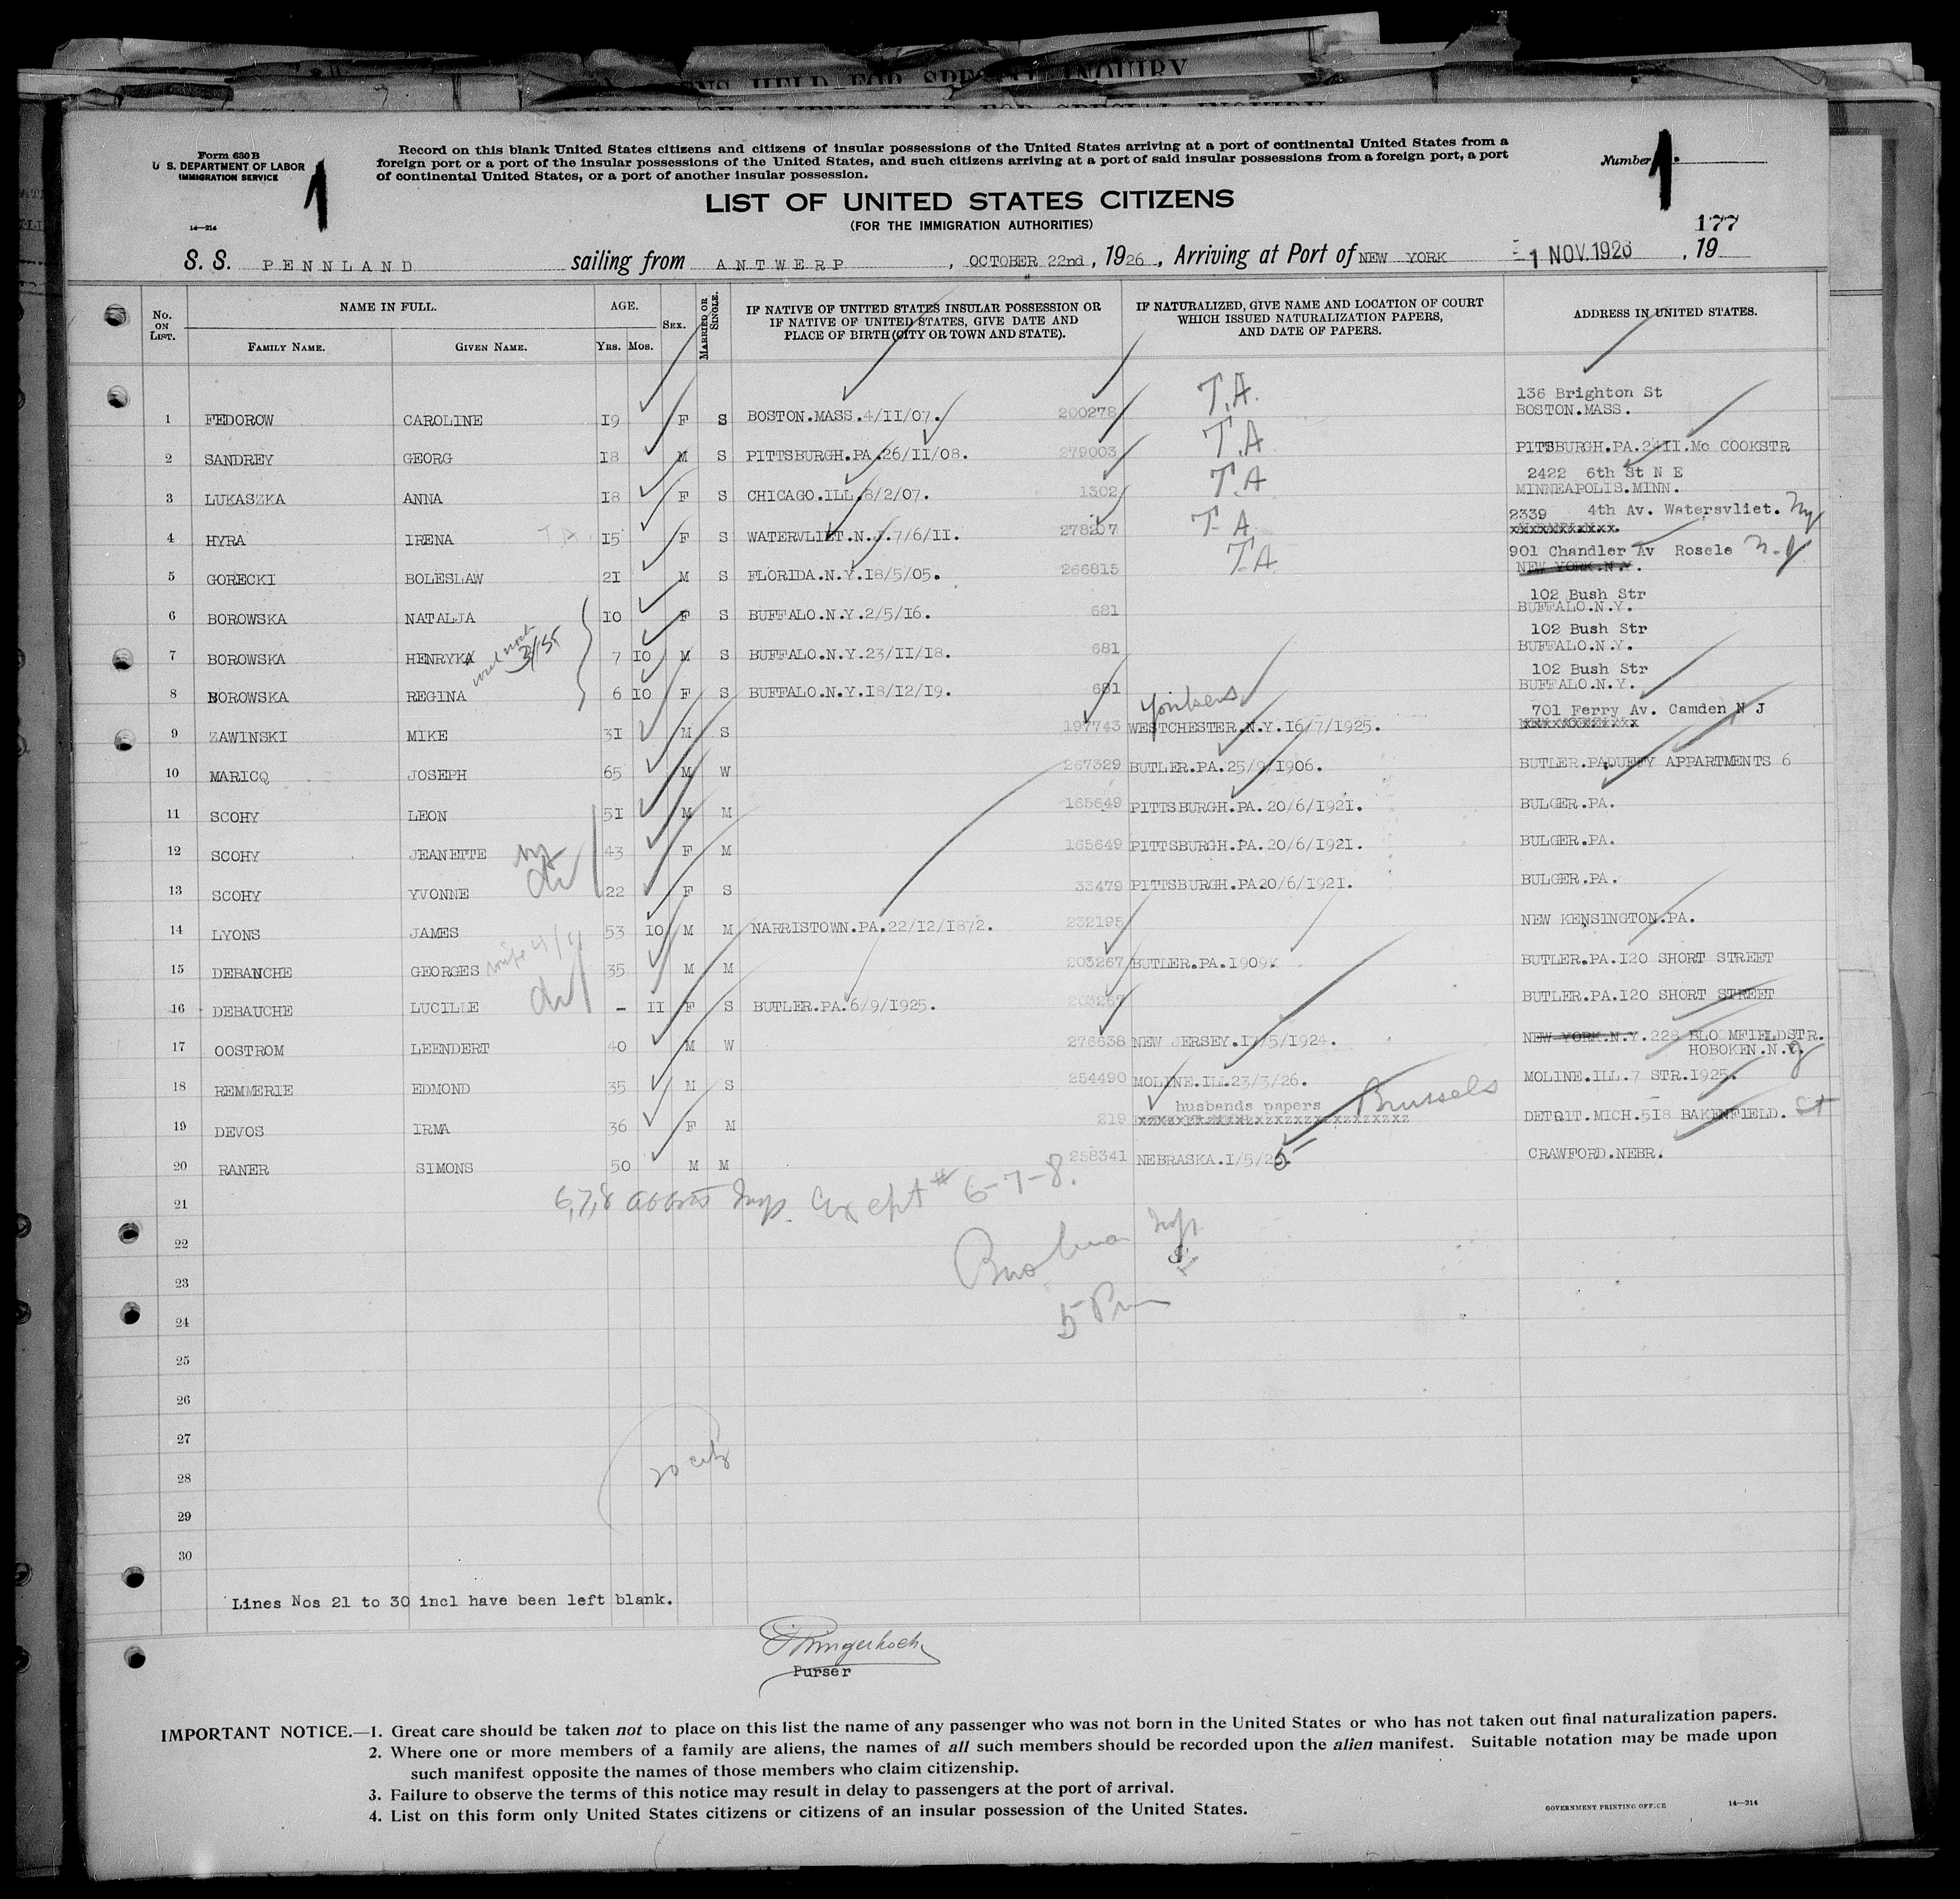 Form 630 B
U. S. DEPARTMENT OF LABOR
IMMIGRATION SERVICE
1
14—214
Record on this blank United States citizens and citizens of insular possessions of the United States arriving at a port of continental United States from a
foreign port or a port of the insular possessions of the United States, and such citizens arriving at a port of said insular possessions from a foreign port, a port
of continental United States, or a port of another insular possession.
Number 1.
LIST OF UNITED STATES CITIZENS
(FOR THE IMMIGRATION AUTHORITIES)
177
S. S. PENNLAND sailing from ANTWERP, OCTOBER 22nd, 1926, Arriving at Port of NEW YORK 1 NOV. 1926, 19
No. ON LIST. NAME IN FULL. FAMILY NAME. GIVEN NAME. AGE. YRS. MOS. SEX. MARRIED OR SINGLE. IF NATIVE OF UNITED STATES INSULAR POSSESSION OR IF NATIVE OF UNITED STATES, GIVE DATE AND PLACE OF BIRTH (CITY OR TOWN AND STATE). IF NATURALIZED, GIVE NAME AND LOCATION OF COURT WHICH ISSUED NATURALIZATION PAPERS, AND DATE OF PAPERS. ADDRESS IN UNITED STATES.
1 FEDOROW CAROLINE 19 F S BOSTON.MASS.4/11/07. 200278 T.A. 136 Brighton St BOSTON.MASS.
2 SANDREY GEORG 18 M S PITTSBURGH.PA.26/11/08. 279003 T.A PITTSBURGH.PA.2411.Mc COOKSTR
3 LUKASZKA ANNA 18 F S CHICAGO.ILL.8/2/07. 1302 T.A 2422 6th St N E MINNEAPOLIS.MINN.
4 HYRA IRENA T.A. 15 F S WATERVLIET.N.J.7/6/11. 278207 T.A 2339 4th Av. Watersvliet. Ny
5 GORECKI BOLESLAW 21 M S FLORIDA.N.Y.18/5/05. 266815 T.A 901 Chandler Av Rosele N.J NEW YORK.N.Y.
6 BOROWSKA NATALJA 10 F S BUFFALO.N.Y.2/5/16. 681 102 Bush Str BUFFALO.N.Y.
7 BOROWSKA HENRYKA 7 10 M S BUFFALO.N.Y.23/11/18. 681 102 Bush Str BUFFALO.N.Y.
8 BOROWSKA REGINA 6 10 F S BUFFALO.N.Y.18/12/19. 681 102 Bush Str BUFFALO.N.Y.
9 ZAWINSKI MIKE 31 M S 197743 Yonkers WESTCHESTER.N.Y.16/7/1925. 701 Ferry Av. Camden N J
10 MARICQ JOSEPH 65 M W 267329 BUTLER.PA.25/9/1906. BUTLER.PADUFFY APPARTMENTS 6
11 SCOHY LEON 51 M M 165649 PITTSBURGH.PA.20/6/1921. BULGER.PA.
12 SCOHY JEANETTE 43 F M 165649 PITTSBURGH.PA.20/6/1921. BULGER.PA.
13 SCOHY YVONNE 22 F S 33479 PITTSBURGH.PA20/6/1921. BULGER.PA.
14 LYONS JAMES 53 10 M M NARRISTOWN.PA.22/12/1872. 232195 NEW KENSINGTON.PA.
15 DEBANCHE GEORGES wife 35 M M 203267 BUTLER.PA.1909. BUTLER.PA.120 SHORT STREET
16 DEBAUCHE LUCILLE - 11 F S BUTLER.PA.6/9/1925. 203267 BUTLER.PA.120 SHORT STREET
17 OOSTROM LEENDERT 40 M W 276638 NEW JERSEY.17/5/1924. NEW YORK.N.Y.228 BLOOMFIELDSTR. HOBOKEN.N.J.
18 REMMERIE EDMOND 35 M S 254490 MOLINE.ILL.23/3/26. MOLINE.ILL.7 STR.1925.
19 DEVOS IRMA 36 F M 219 husbands papers Brussels DETROIT.MICH.518 BAKENFIELD. St
20 RANER SIMONS 50 M M 258341 NEBRASKA.1/5/25. CRAWFORD.NEBR.
21 6,7,8 Insp. Except # 6-7-8.
22 Insp.
23
24 5 Pm
25
26
27
28 20 citz
29
30
Lines Nos 21 to 30 incl have been left blank.
Purser
IMPORTANT NOTICE.—1. Great care should be taken not to place on this list the name of any passenger who was not born in the United States or who has not taken out final naturalization papers.
2. Where one or more members of a family are aliens, the names of all such members should be recorded upon the alien manifest. Suitable notation may be made upon
such manifest opposite the names of those members who claim citizenship.
3. Failure to observe the terms of this notice may result in delay to passengers at the port of arrival.
4. List on this form only United States citizens or citizens of an insular possession of the United States.
GOVERNMENT PRINTING OFFICE 14—214